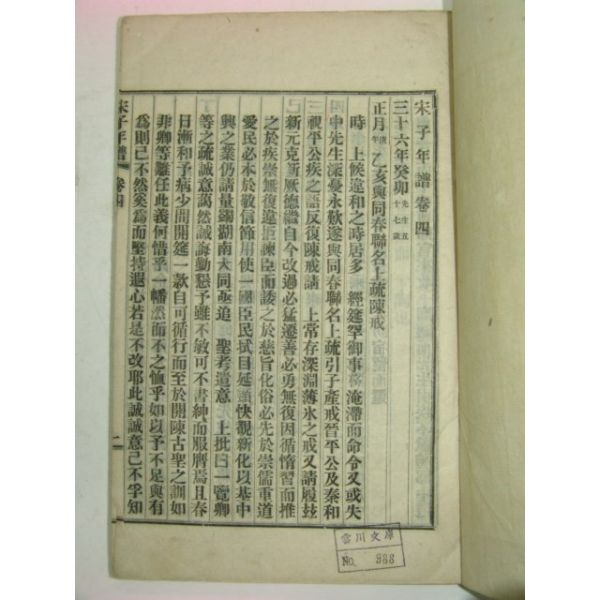 宋子年譜卷四
三十六年癸卯先生五十七歲
正月 乙亥與同春聯名上疏陳戒
時 上候違和之時居多 經筵罕御事務淹滯而命令又或失
中先生深憂永歎遂與同春聯名上疏引子產戒晉平公及秦和
視平公疾之語反復陳戒請 上常存深淵薄氷之戒又請履玆
新元克新厥德繼自今改過必猛遷善必勇無復因循惰習而推
之於疾祟無復違拒諫臣而諉之於慈旨化俗必先於崇儒重道
愛民必本於敬信節用使一國臣民拭目延頸快覩新化以基中
興之業仍請量蠲湖南大同米追 聖考遺意 上批曰一覽卿
等之疏誠意藹然誠誨勤懇予雖不敏可不書紳而服膺焉且春
日漸和予病少間開筵一款自可循行而至於開陳古聖之訓如
非卿等離任此義何惜乎一幡然而不之恤乎如以予不足與有
爲則已不然奚爲而堅持遐心若是不改耶此誠誠意已不孚知
宋子年譜 卷四 二
雲川文庫
No. 888